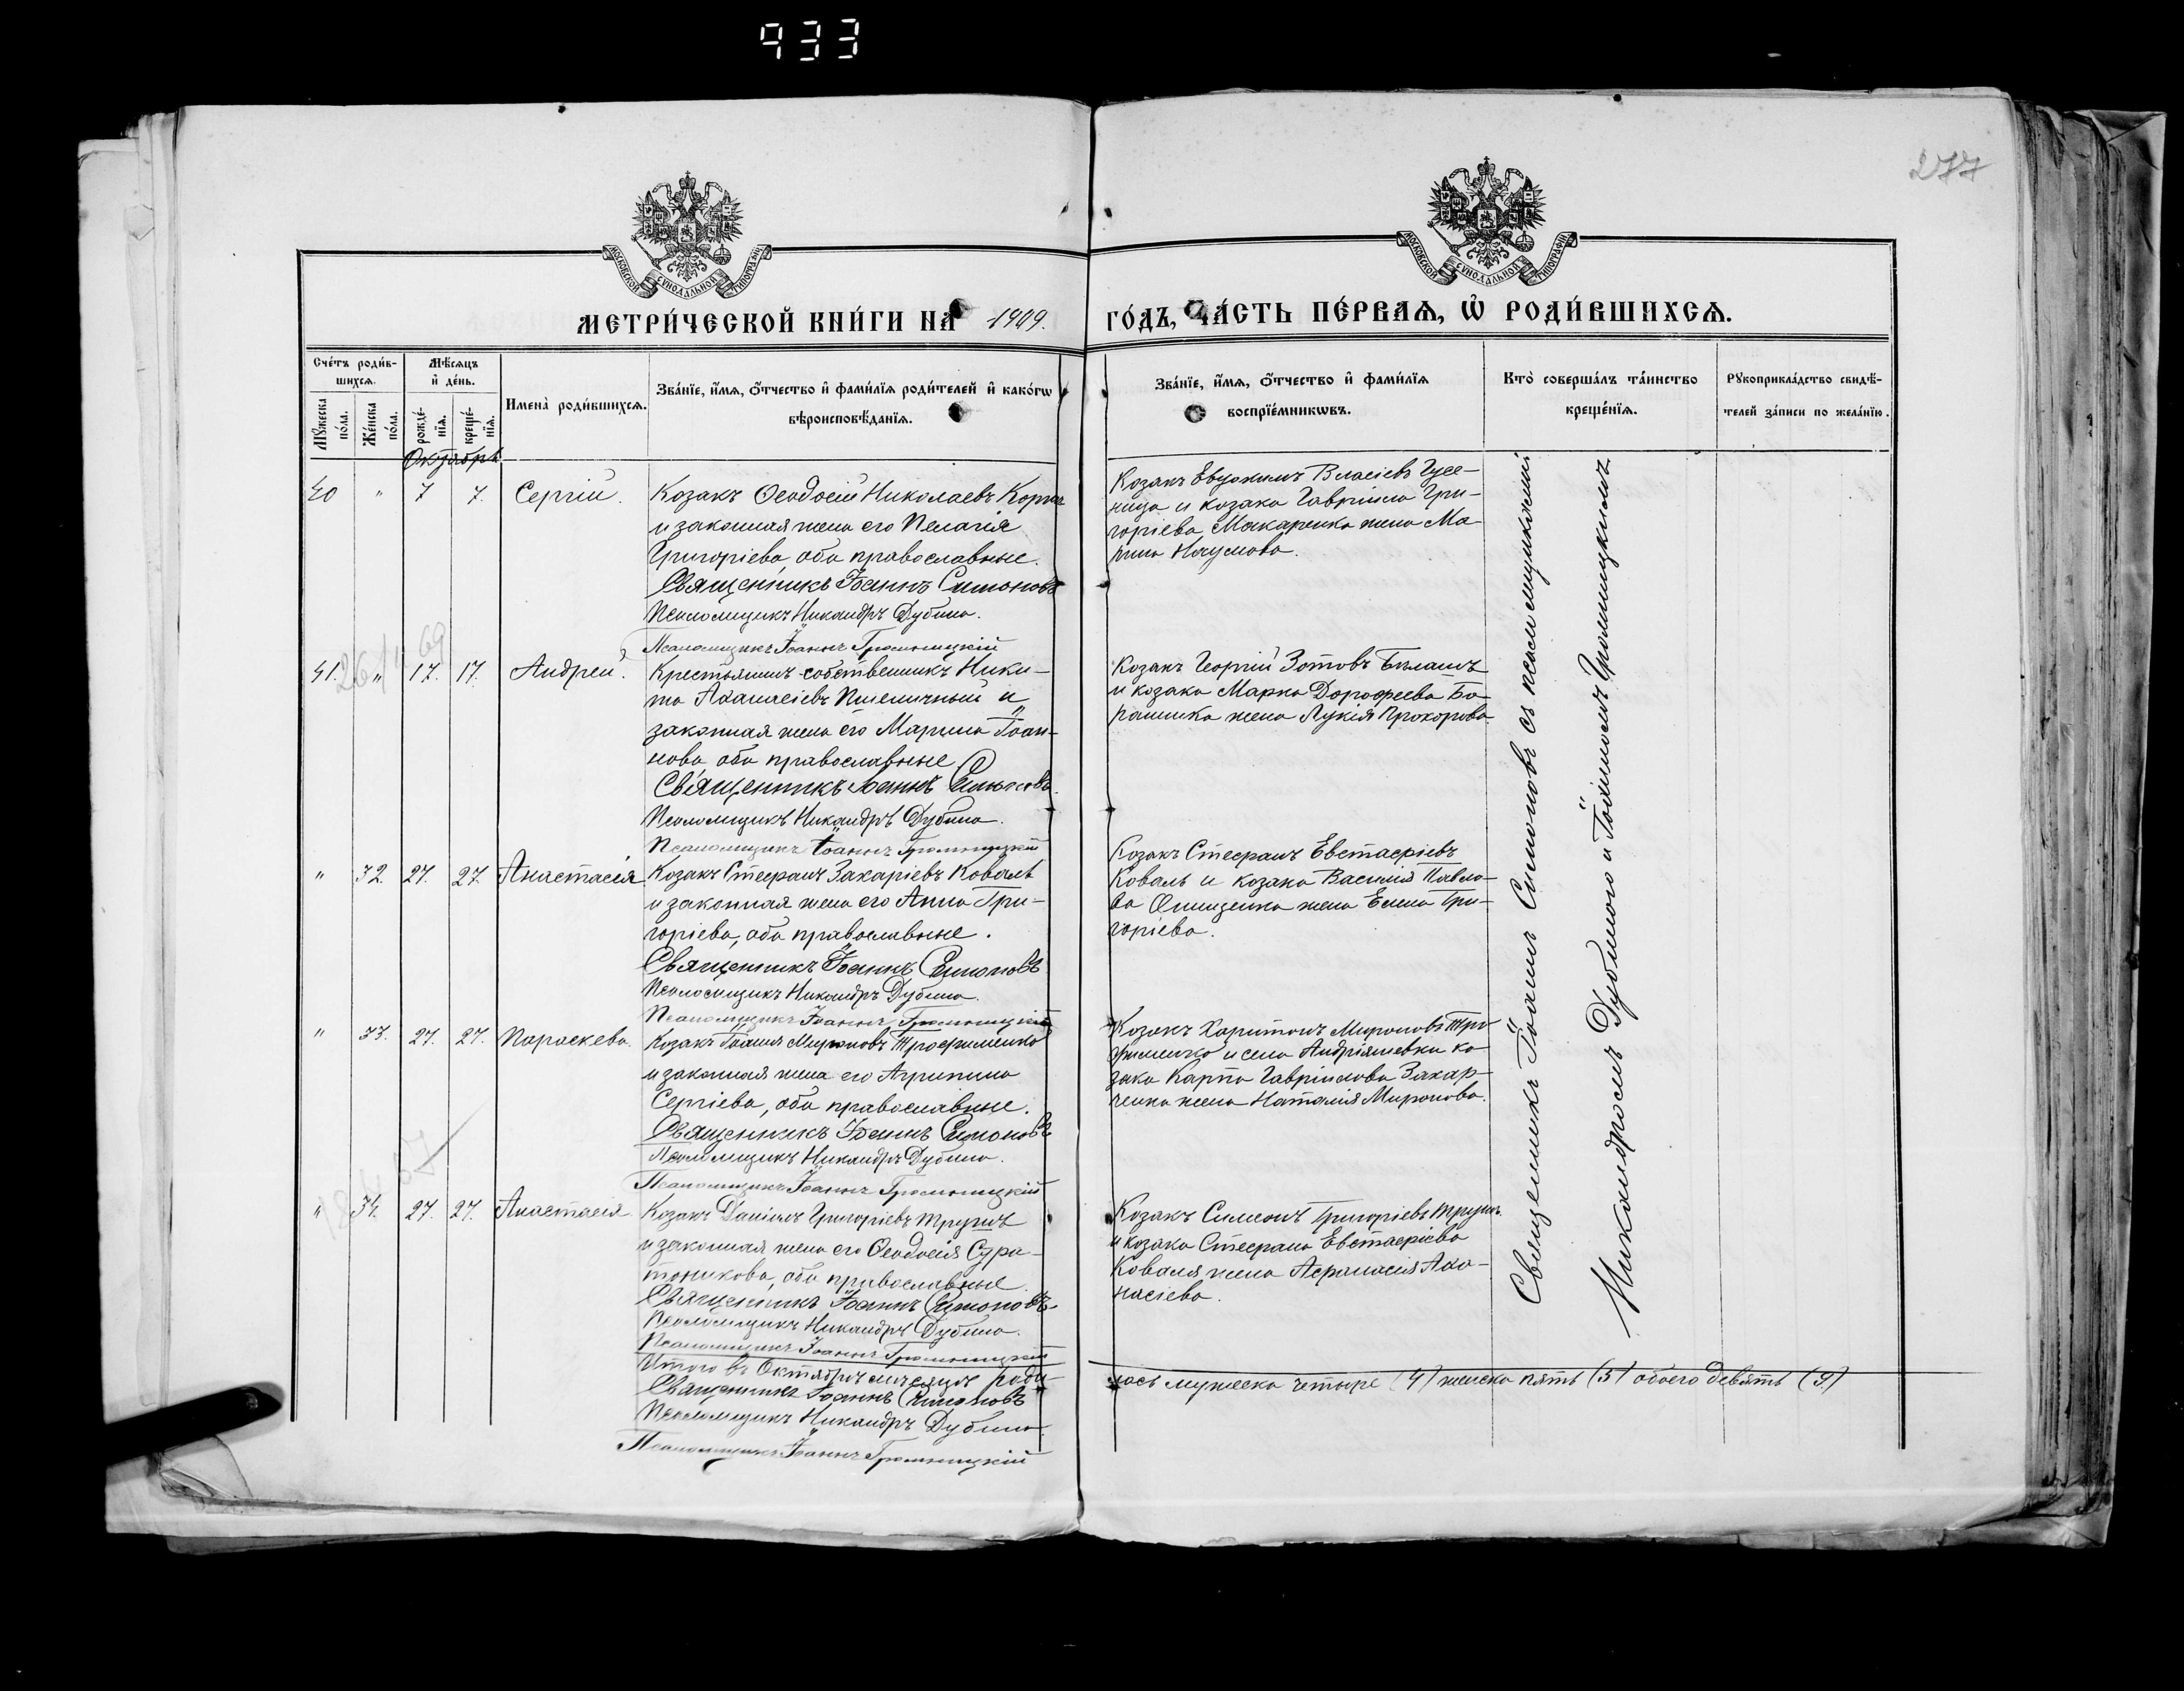 933
277
МОСКОВСКОЙ СУНОДАЛЬНОЙ ТИПОГРАФІИ
МОСКОВСКОЙ СУНОДАЛЬНОЙ ТИПОГРАФІИ
МЕТРИ́ЧЕСКОЙ КНИ́ГИ НА 1909.
ГО́ДЪ, ЧА́СТЬ ПЕ́РВАѦ, Ѡ҆ РОДИ́ВШИХСѦ.
Сче́тъ роди́в-
шихсѧ.
Мꙋ́жеска по́ла.
Же́нска по́ла.
Мѣ́сѧцъ
и҆ де́нь.
рожде́-
нїѧ.
креще́-
нїѧ.
Имена̀ роди́вшихсѧ.
Зва́нїе, и҆́мѧ, ѻ҆́тчество и҆ фами́лїѧ роди́телей и҆ како́гѡ
вѣроисповѣ́данїѧ.
Зва́нїе, и҆́мѧ, ѻ҆́тчество и҆ фами́лїѧ
воспрїе́мникѡвъ.
Кто̀ соверша́лъ та́инство
креще́нїѧ.
Рꙋкоприкла́дство свидѣ́-
телей за́писи по жела́нїю.
Октябрь
40 " 7 7. Сергій. Козакъ Ѳеодосій Николаевъ
и законная жена его Пелагія
Григоріева, оба православные.
Священникъ Іоаннъ Симоновъ
Псаломщикъ Никандръ Дубина.
Псаломщикъ Іоаннъ Громницкій
Козакъ Евдокимъ Власіевъ Гусе-
ница и козака Гавріила Гри-
горіева Макаренка жена Ма-
рина Наумова.
41. " 17. 17. Андрей. Крестьянинъ-собственникъ Ники-
та Аѳанасіевъ Пшеничный и
законная жена его Марина Іоан-
нова, оба православные
Священникъ Іоаннъ Симоновъ.
Псаломщикъ Никандръ Дубина.
Псаломщикъ Іоаннъ Громницкій
Козакъ Георгій Зотовъ Бѣлашъ
и козака Марка Дорофеева Бо-
рошика жена Лукія Прохорова
" 32. 27. 27. Анастасія Козакъ Стефанъ Захаріевъ Коваль
и законная жена его Анна Гри-
горіева, оба православные.
Священникъ Іоаннъ Симоновъ
Псаломщикъ Никандръ Дубина.
Псаломщикъ Іоаннъ Громницкій
Козакъ Стефанъ Евстафіевъ
Коваль и козака Василія Павло-
ва Онищенка жена Елена Гри-
горіева.
" 33. 27. 27. Параскева. Козакъ Іоаннъ Мироновъ Трофименко
и законная жена его Агрипина
Сергіева, оба православные.
Священникъ Іоаннъ Симоновъ
Псаломщикъ Никандръ Дубина.
Псаломщикъ Іоаннъ Громницкій
Козакъ Харитонъ Мироновъ Тро-
фименко и села Андріяшевки ко-
зака Карпа Гавріилова Захар-
ченка жена Наталія Миронова.
" 34. 27. 27. Анастасія Козакъ Даніилъ Григоріевъ Трушъ
и законная жена его Ѳеодосія Стра-
тоникова, оба православные.
Священникъ Іоаннъ Симоновъ
Псаломщикъ Никандръ Дубина.
Псаломщикъ Іоаннъ Громницкій
Козакъ Симеонъ Григоріевъ Трушъ
и козака Стефана Евстафіева
Коваля жена Афанасія Аѳа-
насіева.
Итого въ Октябрѣ мѣсяцѣ роди-
лось мужеска четыре (4) женска пять (5) обоего девять (9)
Священникъ Іоаннъ Симоновъ
Псаломщикъ Никандръ Дубина
Псаломщикъ Іоаннъ Громницкій
Священникъ Іоаннъ Симоновъ съ псаломщиками
Никандромъ Дубиною и Іоанномъ Громницкимъ